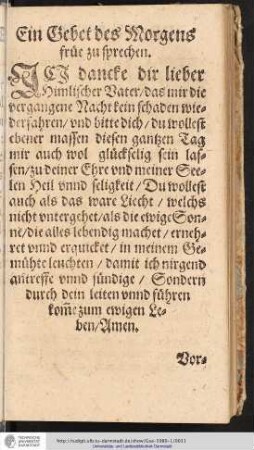 Ein Gebet des Morgens
früe zu sprechen.
ICH dancke dir lieber
Himlischer Vater / das mir die
vergangene Nacht kein schaden wie-
derfahren / vnd bitte dich / du wollest
ebener massen diesen gantzen Tag
mir auch wol glückselig sein las-
sen / zu deiner Ehre vnd meiner See-
len Heil vnnd seligkeit / Du wollest
auch als das ware Liecht / welchs
nicht vntergehet / als die ewige Son-
ne / die alles lebendig machet / erneh-
ret vnnd erquicket / in meinem Ge-
mühte leuchten / damit ich nirgend
antreffe vnnd sündige / Sondern
durch dein leiten vnnd führen
kom̄e zum ewigen Le-
ben / Amen.
Vor-